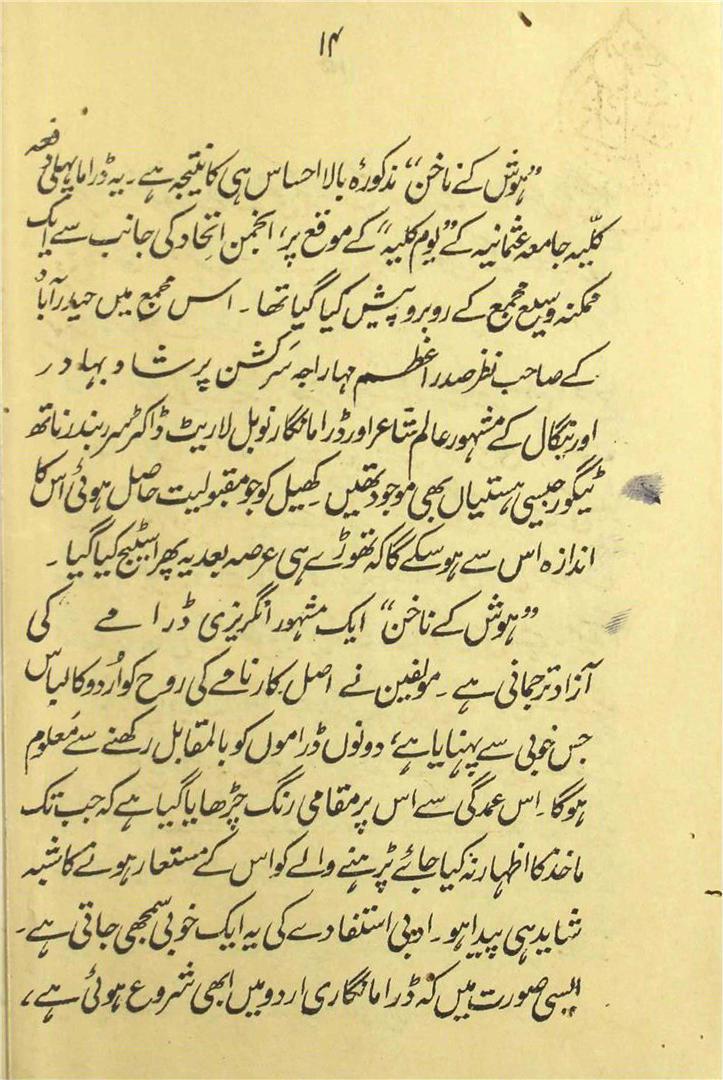 ۱۴
”ہوش کے ناخن“ مذکورۂ بالا احساس ہی کا نتیجہ ہے۔ یہ ڈراما پہلی دفعہ
کلّیہ جامعہ عثمانیہ کے ”یوم کلیہ“ کے موقع پر، انجمن اتحاد کی جانب سے ایک
ممکنہ وسیع مجمع کے روبرو پیش کیا گیا تھا۔ اس مجمع میں حیدرآباد
کے صاحب نظر صدر اعظم مہاراجہ سر کشن پرشاد بہادر
اور بنگال کے مشہور عالم شاعر اور ڈراما نگار نوبل لاریٹ ڈاکٹر سر رابندر ناتھ
ٹیگور جیسی ہستیاں بھی موجود تھیں۔ کھیل کو جو مقبولیت حاصل ہوئی اس کا
اندازہ اس سے ہو سکے گا کہ تھوڑے ہی عرصہ بعد یہ پھر اسٹیج کیا گیا۔
”ہوش کے ناخن“ ایک مشہور انگریزی ڈرامے کی
آزاد ترجمانی ہے۔ مولفین نے اصل کارنامے کی روح کو اُردو کا لباس
جس خوبی سے پہنایا ہے، دونوں ڈراموں کو بالمقابل رکھنے سے معلوم
ہوگا۔ اس عمدگی سے اس پر مقامی رنگ چڑھایا گیا ہے کہ جب تک
ماخذ کا اظہار نہ کیا جائے پڑہنے والے کو اس کے مستعار ہونے کا شبہ
شاید ہی پیدا ہو۔ ادبی استفادے کی یہ ایک خوبی سمجھی جاتی ہے۔
ایسی صورت میں کہ ڈراما نگاری اردو میں ابھی شروع ہوئی ہے،